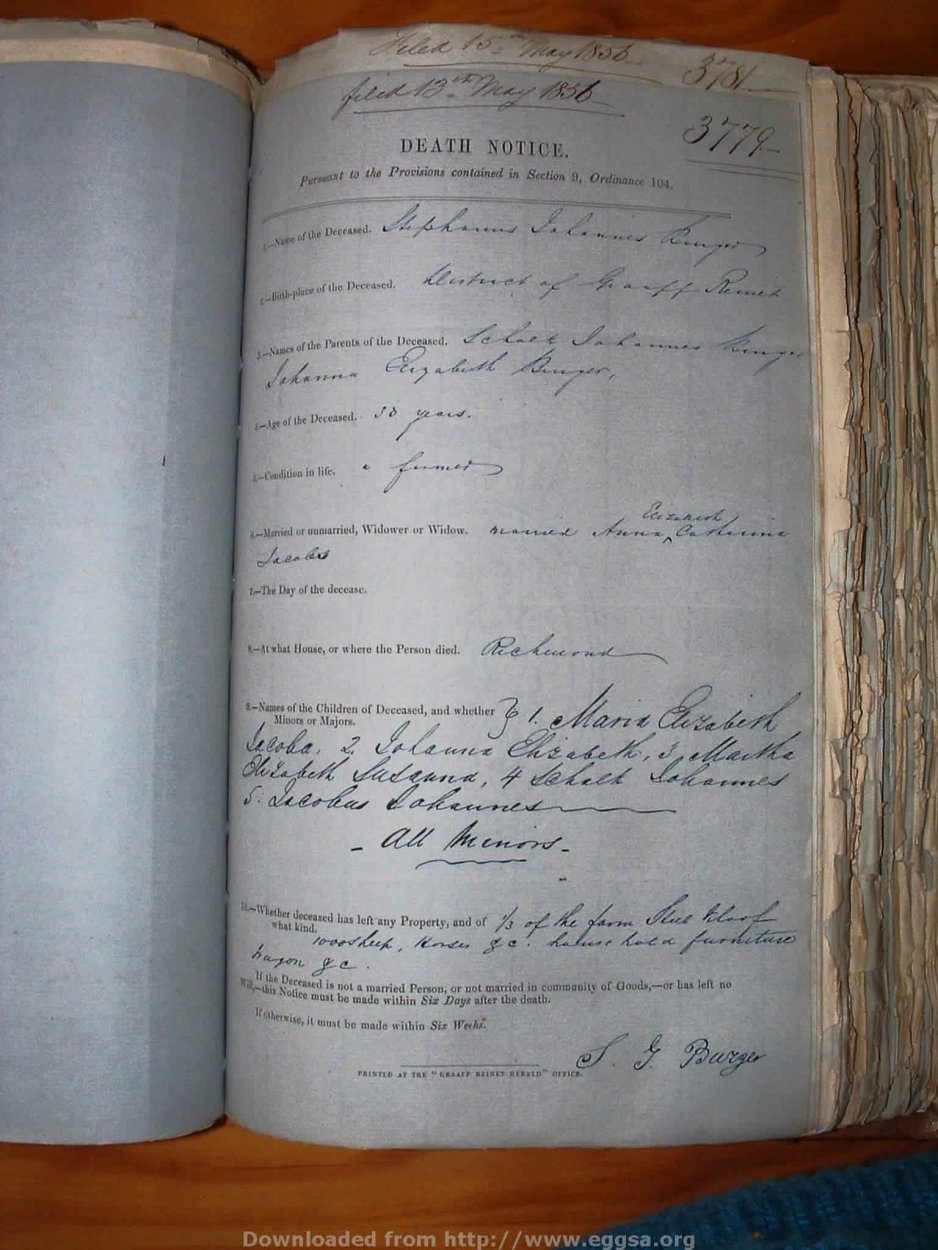 Filed 15th May 1856
3781.
filed 13th May 1856
3779
DEATH NOTICE.
Pursuant to the Provisions contained in Section 9, Ordinance 104.
1.—Name of the Deceased. Stephanus Johannes Burger
2.—Birth-place of the Deceased. District of Graaff Reinet
3.—Names of the Parents of the Deceased. Schalk Johannes Burger
Johanna Elizabeth Burger,
4.—Age of the Deceased. 33 years.
5.—Condition in life. a farmer
6.—Married or unmarried, Widower or Widow. married Anna Elizabeth Catharina
Jacobs
7.—The Day of the decease.
8.—At what House, or where the Person died. Richmond
9.—Names of the Children of Deceased, and whether } 1. Maria Elizabeth
Minors or Majors.
Jacoba, 2 Johanna Elizabeth, 3 Martha
Elizabeth Susanna, 4 Schalk Johannes
5: Jacobus Johannes
- All Minors -
10.—Whether deceased has left any Property, and of 1/3 of the farm Kloof
what kind. 1000 sheep, Horses &c. house hold furniture
wagon &c.
If the Deceased is not a married Person, or not married in community of Goods,—or has left no
Will,—this Notice must be made within Six Days after the death.
If otherwise, it must be made within Six Weeks.
S. J. Burger
PRINTED AT THE "GRAAFF REINET HERALD" OFFICE.
Downloaded from http://www.eggsa.org